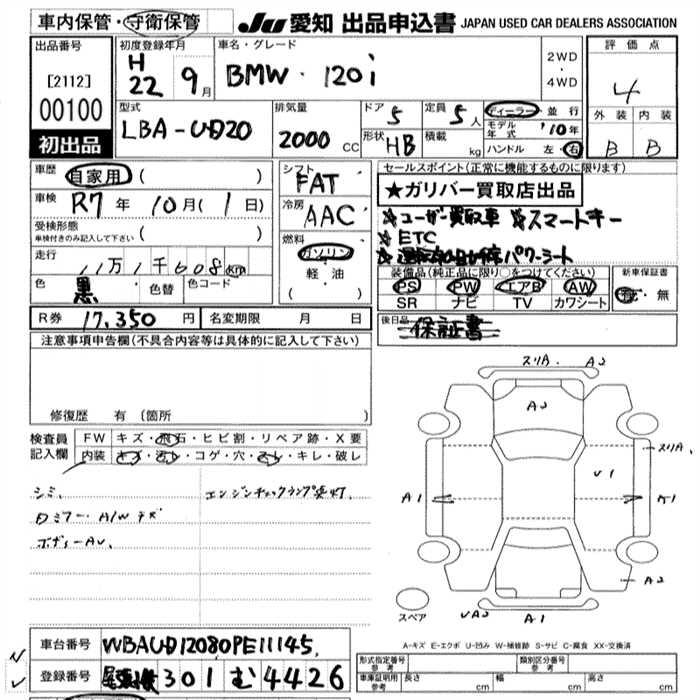 車内保管・守衛保管
JU 愛知 出品申込書 JAPAN USED CAR DEALERS ASSOCIATION
出品番号
[2112]
00100
初出品
初度登録年月
H 22 9月
車名・グレード
BMW・120i
2WD
・
4WD
評価点
4
外装 内装
B B
型式
LBA-UD20
排気量
2000 CC
ドア 5
定員 5人
形状 HB
積載 kg
ディーラー 並行
モデル年式 '10年
ハンドル 左・右
車歴
自家用 ( )
車検 R7年10月(1日)
受検形態
車検付きのみ記入して下さい ( )
走行
11万1千608km
色 黒 色替 色コード
シフト
FAT
冷房
AAC
燃料
ガソリン
軽・油
( )
セールスポイント(正常に機能するものに限ります)
★ガリバー買取店出品
★ユーザー買取車 ★スマートキー
★ETC
パワーシート
装備品(純正品に限り○をつけてください)
PS PW エアB AW
SR ナビ TV カワシート
新車保証書
有・無
後日品
保証書
R券 17,350円 名変期限 月 日
注意事項申告欄(不具合内容等は具体的に記入して下さい)
修復歴 有(箇所
検査員記入欄
FW キズ・飛石・ヒビ割・リペア跡・X要
内装 キズ・汚レ・コゲ・穴・スレ・キレ・破レ
シミ、 エンジンチェックランプ点灯
ロミラー・A/W キズ
ボディーAU、
スリA、 A2
A2
スリA、
A1
U1
A1
A2
スペア
UA2 A1
A-キズ E-エクボ U-凹み W-補修跡 S-サビ C-腐食 XX-交換済
車台番号 WBAUD12080PE11145
登録番号 尾張小牧 301 む 4426
型式指定番号
参考
類別区分番号
参考
車庫証明用
参考
長さ cm 幅 cm 高さ cm